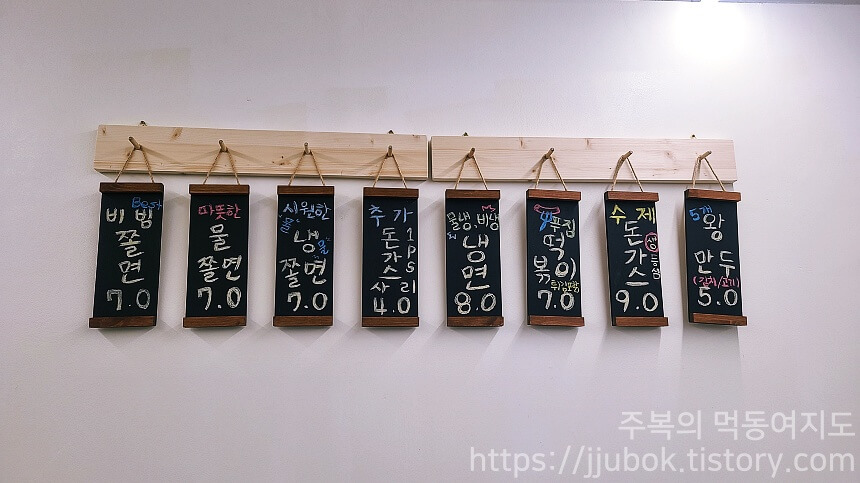 Best
비빔
쫄
면
7.0
따뜻한
물
쫄면
7.0
시원한
물
냉
물
쫄면
7.0
추가
돈
가
스
1 p s
사리
4.0
물냉, 비냉
냉
면
8.0
푸짐
떡
볶이
튀김포함
7.0
수제
돈
가
스
생등심
9.0
5개
왕
만두
(김치/고기)
5.0
주복의 먹동여지도
https://jjubok.tistory.com